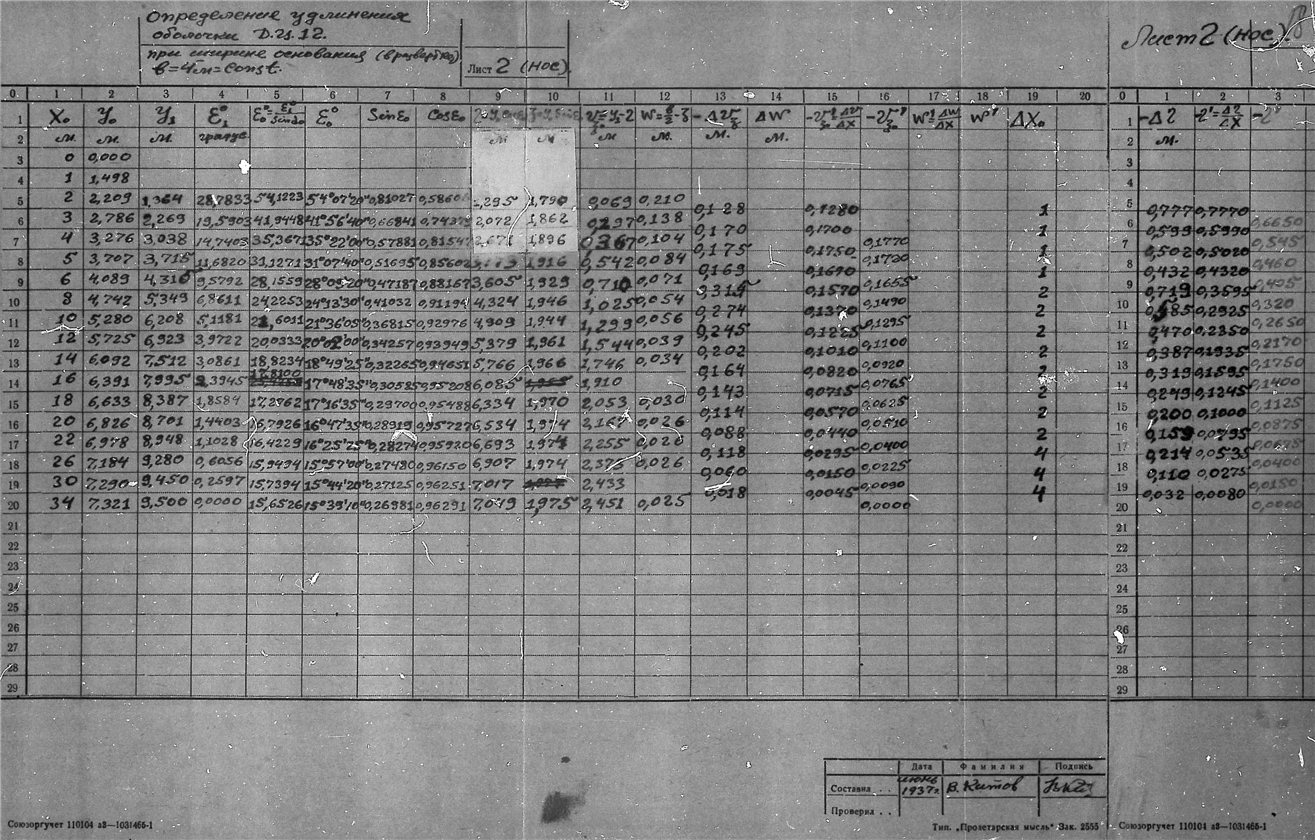 Определение удлинения
оболочки Д.Ц.12.
при ширине основания
в=4м=const.
Лист 2 (нос).
Лист 2 (нос).
0 1 2 3 4 5 6 7 8 9 10 11 12 13 14 15 16 17 18 19 20 0 1 2 3
1 X₀ y₀ y₁ ε₁° ε₀° Sinε₀ Cosε₀ ΔW W' ΔX₀ 1 -Δ2
2 м. м. м. градус м м м м. м. м. 2 м.
3 0 0,000 3
4 1 1,498 4
5 2 2,209 1,364 28,7833 54,1223 54°07'20" 0,81027 1,295 1,790 0,069 0,210 5
0,128 0,1280 1 0,777 0,7770
6 3 2,786 2,269 19,5903 41,9448 41°56'40" 0,66841 2,072 1,862 0,197 0,138 6 0,6650
0,170 0,1700 1 0,599 0,5990
7 4 3,276 3,038 14,7403 35,3671 35°22'00" 0,57881 0,81547 2,671 1,896 0,367 0,104 0,1770 7 0,545
0,175 0,1750 1 0,502 0,5020
8 5 3,707 3,715 11,6820 31,1271 31°07'40" 0,51695 0,85602 1,916 0,542 0,084 0,1720 8 0,460
0,169 0,1690 1 0,432 0,4320
9 6 4,089 4,316 9,5792 28,1559 28°09'20" 0,47187 0,88167 3,605 1,929 0,710 0,071 0,1665 9 0,405
0,315 0,1570 2 0,719 0,3595
10 8 4,742 5,349 6,8611 24,2253 24°13'30" 0,41032 0,91194 4,324 1,946 1,025 0,054 0,1490 10 0,320
0,274 0,1370 2 0,585 0,2925
11 10 5,280 6,208 5,1181 21,6011 21°36'05" 0,36815 0,92976 4,909 1,944 1,299 0,056 0,1295 11 0,2650
0,245 0,1225 2 0,470 0,2350
12 12 5,725 6,923 3,9722 20,0333 20°02'00" 0,34257 0,93949 5,379 1,961 1,544 0,039 0,1100 12 0,2170
0,202 0,1010 2 0,387 0,1935
13 14 6,092 7,512 3,0861 18,8234 18°49'25" 0,32265 0,94651 5,766 1,966 1,746 0,034 0,0920 13 0,1750
0,164 0,0820 2 0,319 0,1595
17,8100
14 16 6,391 7,995 2,3945 17°48'35" 0,30585 0,95208 6,085 1,910 0,0765 14 0,1400
0,143 0,0715 2 0,249 0,1245
15 18 6,633 8,387 1,8584 17,2762 17°16'35" 0,29700 0,95488 6,334 1,970 2,053 0,030 0,0625 15 0,1125
0,114 0,0570 2 0,200 0,1000
16 20 6,826 8,701 1,4403 16,7926 16°47'35" 0,28919 0,95727 6,534 1,974 2,167 0,026 0,0510 16 0,0875
0,088 0,0440 2 0,159 0,0795
17 22 6,978 8,948 1,1028 16,4229 16°25'25" 0,28274 0,95920 6,693 1,974 2,255 0,026 0,0400 17
0,118 0,0295 4 0,214 0,0535
18 26 7,184 9,280 0,6056 15,9494 15°57'00" 0,27480 0,96150 6,907 1,974 2,373 0,026 0,0225 18 0,0400
0,060 0,0150 4 0,110 0,0275
19 30 7,290 9,450 0,2597 15,7394 15°44'20" 0,27125 0,96251 7,017 2,433 0,0090 19 0,0150
0,018 0,0045 4 0,032 0,0080
20 34 7,321 9,500 0,0000 15,6526 15°39'10" 0,26981 0,96291 7,049 1,975 2,451 0,025 0,0000 20 0,0000
21 21
22 22
23 23
24 24
25 25
26 26
27 27
28 28
29 29
Дата Фамилия Подпись
Составил . . июнь 1937г В. Китов
Проверил . .
Союзоргучет 110104 а3—1031466-1
Тип. „Пролетарская мысль" Зак. 2555
Союзоргучет 110104 а3—1031466-1